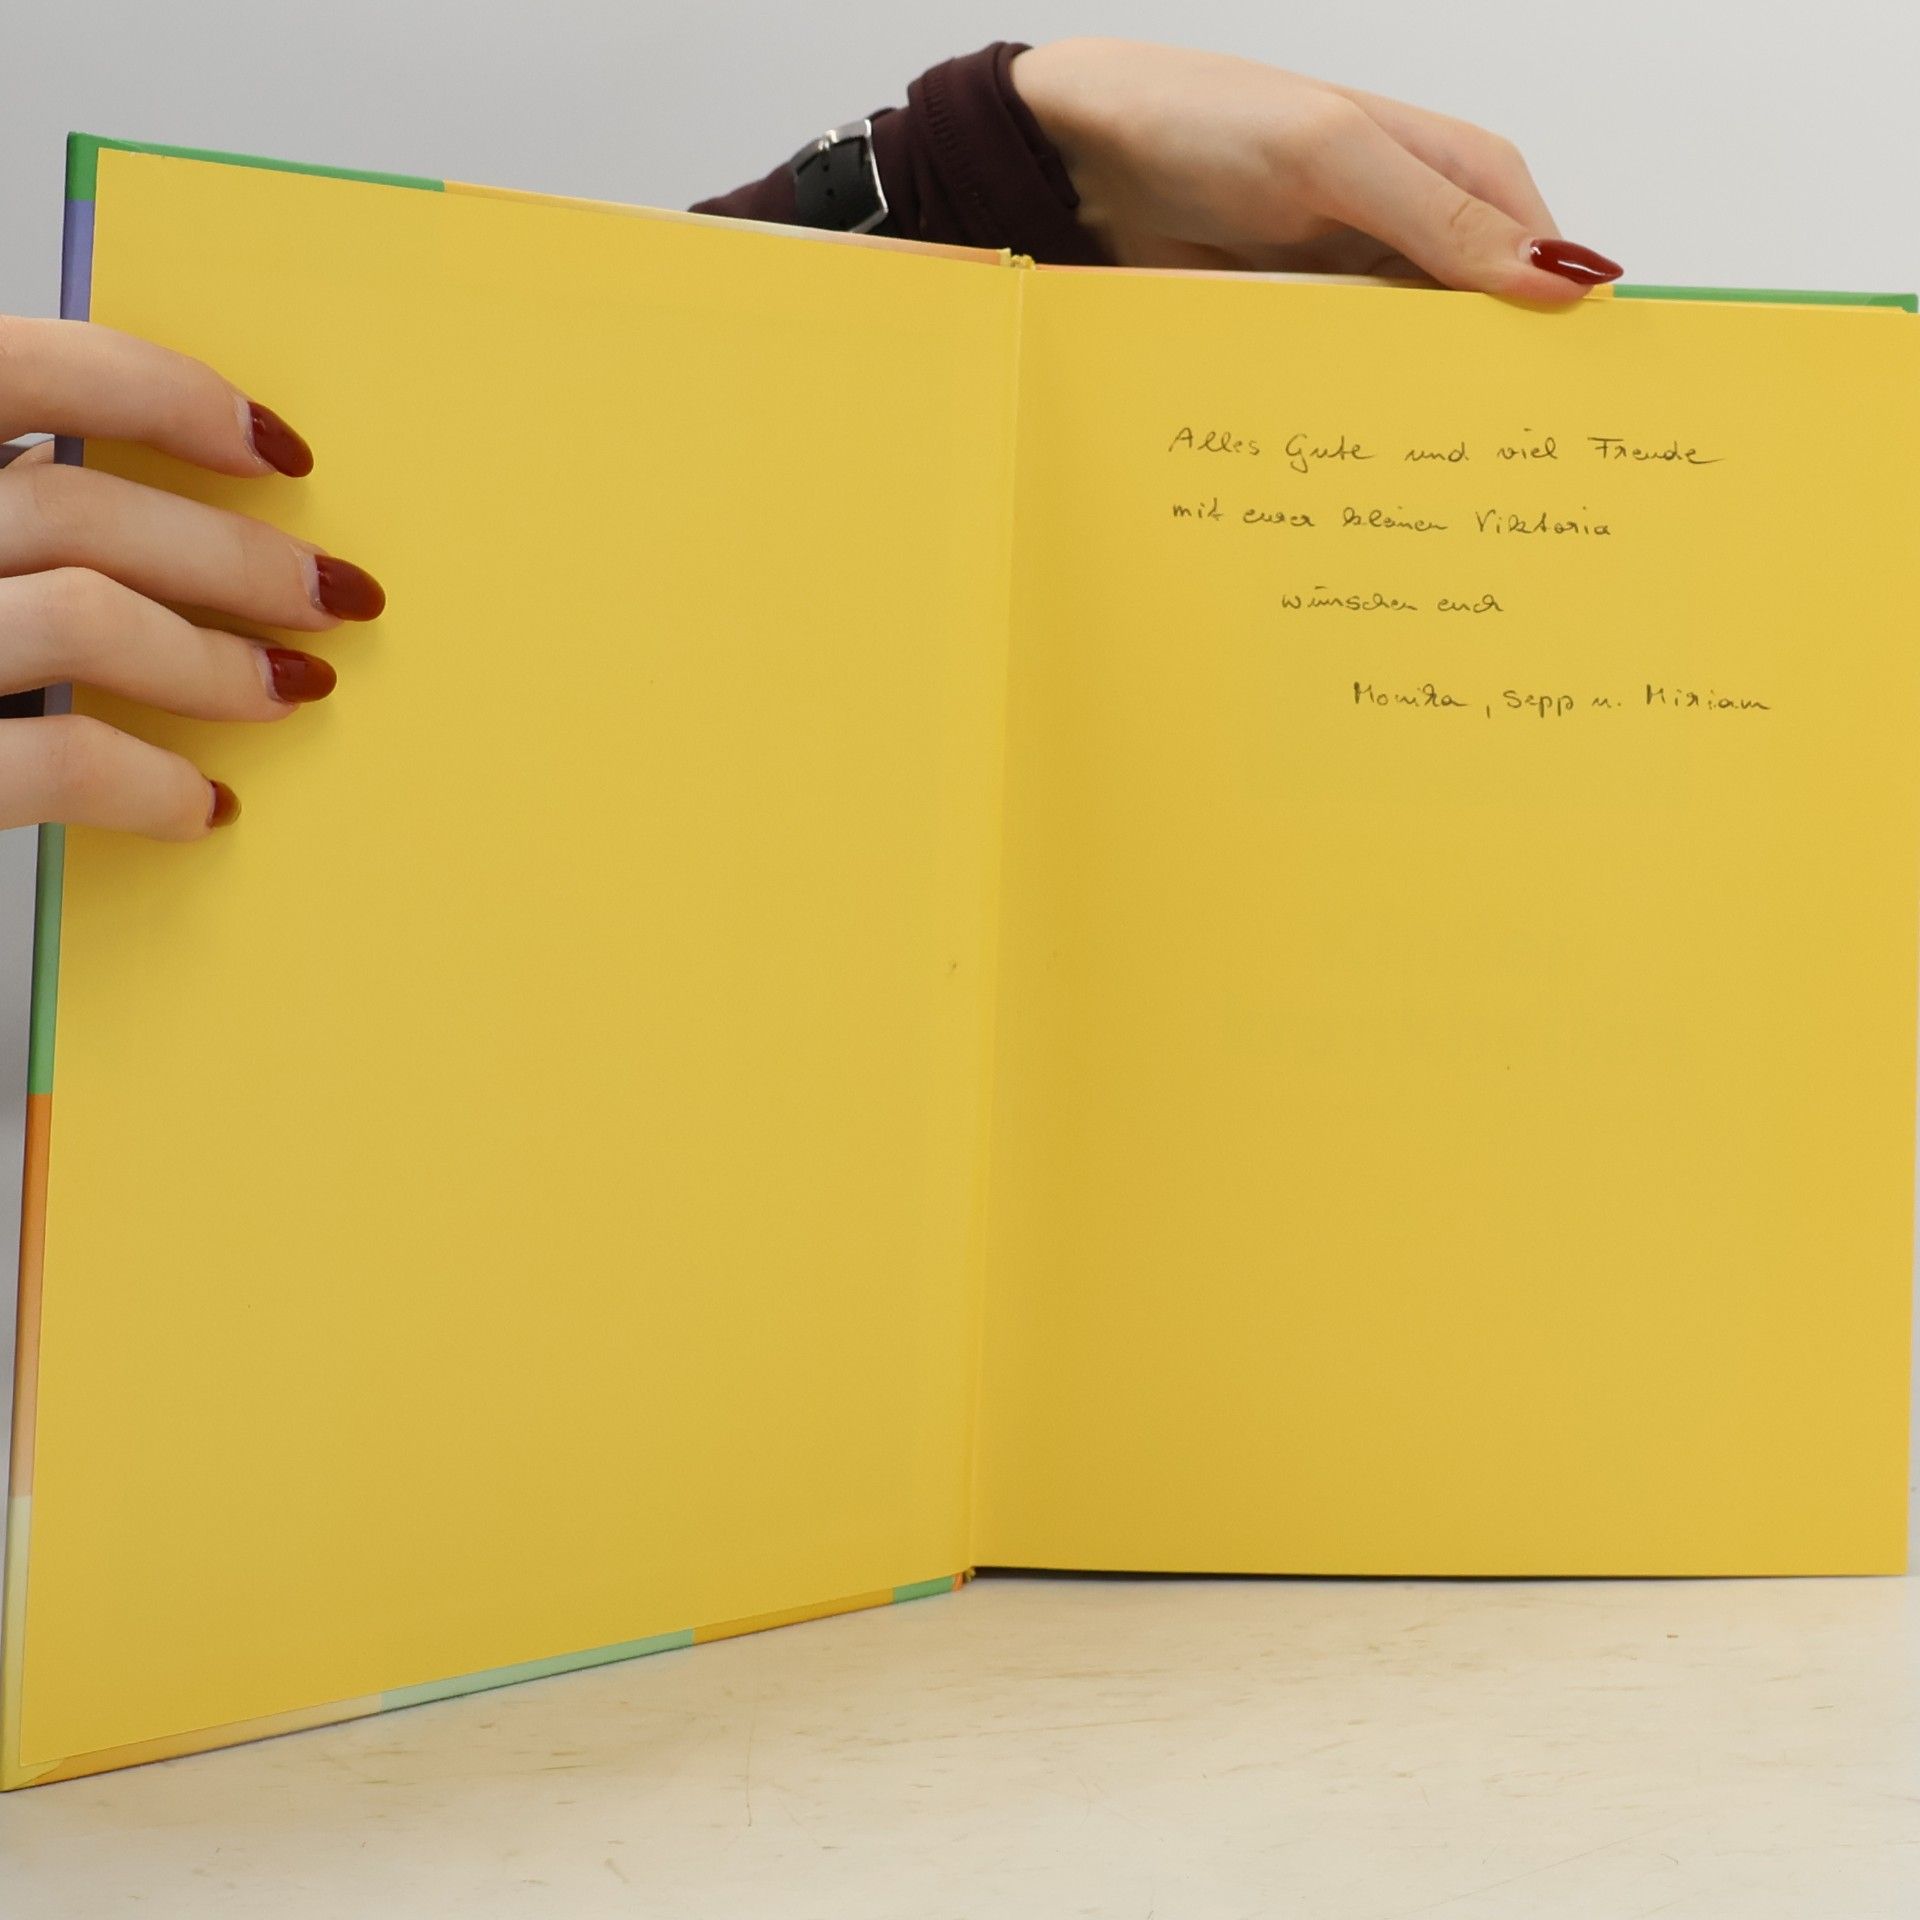 Alles Gute und viel Freude
mit eurer kleinen Viktoria
wünschen euch
Monika, Sepp u. Miriam